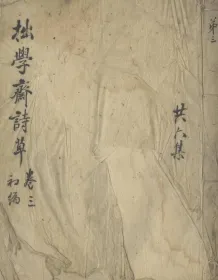 第三
共六集
拙學齋詩草 卷三
初編